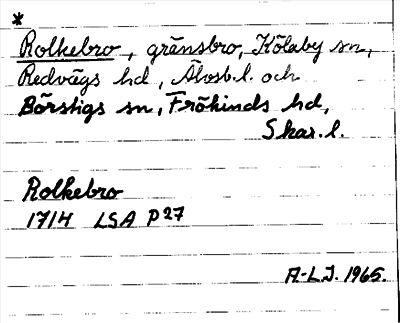 *
Rolkebro, gränsbro, Kölaby sn,
Redvägs hd, Älvsb.l. och
Börstigs sn, Frökinds hd,
Skar.l.
Rolkebro
1714 LSA P27
A-L.J. 1965.